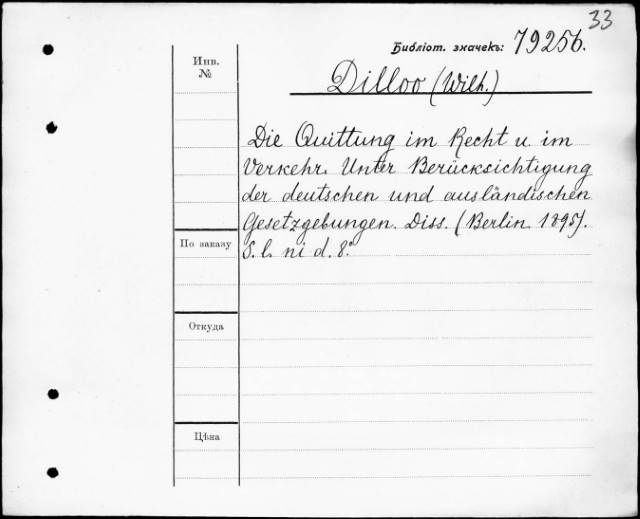 33
Библіот. значекъ: 79256.
Инв.
№
Dilloo (Wilh.)
Die Quittung im Recht u. im
Verkehr. Unter Berücksichtigung
der deutschen und ausländischen
Gesetzgebungen. Diss. (Berlin. 1895).
S. l. ni d. 8º
По заказу
Откуда
Цѣна